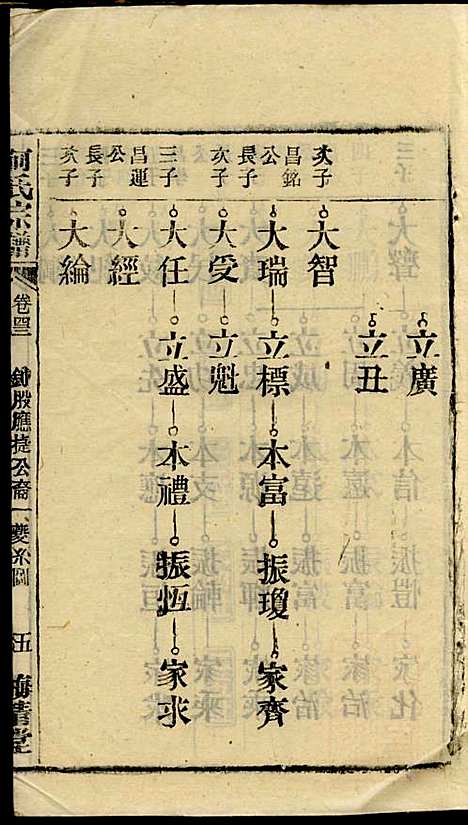 立廣
立丑
次子 大智
昌銘公長子 大瑞 立標 本富 振瓊 家齊
次子 大受 立魁
三子 大任 立盛 本禮 振恆 家求
昌運公長子 大經
次子 大綸
何氏宗譜 卷四三 鈁股應捷公裔 世系圖 五